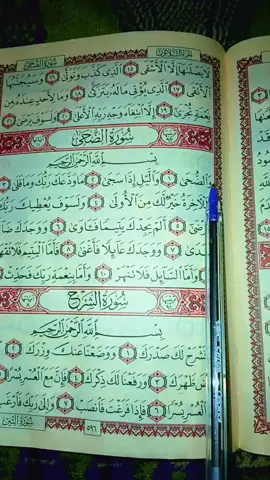 سُورَةُ الضُّحَىٰ
لَا يَصْلَىٰهَآ إِلَّا ٱلْأَشْقَى ١٥ ٱلَّذِى كَذَّبَ وَتَوَلَّىٰ ١٦ وَسَيُجَنَّبُهَا
ٱلْأَتْقَى ١٧ ٱلَّذِى يُؤْتِى مَالَهُۥ يَتَزَكَّىٰ ١٨ وَمَا لِأَحَدٍ عِندَهُۥ مِن
نِّعْمَةٍ تُجْزَىٰٓ ١٩ إِلَّا ٱبْتِغَآءَ وَجْهِ رَبِّهِ ٱلْأَعْلَىٰ ٢٠ وَلَسَوْفَ يَرْضَىٰ ٢١
سُورَةُ الضُّحَىٰ
بِسْمِ ٱللَّهِ ٱلرَّحْمَٰنِ ٱلرَّحِيمِ
وَٱلضُّحَىٰ ١ وَٱلَّيْلِ إِذَا سَجَىٰ ٢ مَا وَدَّعَكَ رَبُّكَ وَمَا قَلَىٰ ٣
وَلَلْءَاخِرَةُ خَيْرٌ لَّكَ مِنَ ٱلْأُولَىٰ ٤ وَلَسَوْفَ يُعْطِيكَ رَبُّكَ
فَتَرْضَىٰٓ ٥ أَلَمْ يَجِدْكَ يَتِيمًا فَـَٔاوَىٰ ٦ وَوَجَدَكَ ضَآلًّا
فَهَدَىٰ ٧ وَوَجَدَكَ عَآئِلًا فَأَغْنَىٰ ٨ فَأَمَّا ٱلْيَتِيمَ فَلَا تَقْهَرْ
٩ وَأَمَّا ٱلسَّآئِلَ فَلَا تَنْهَرْ ١٠ وَأَمَّا بِنِعْمَةِ رَبِّكَ فَحَدِّثْ ١١
سُورَةُ الشَّرْحِ
بِسْمِ ٱللَّهِ ٱلرَّحْمَٰنِ ٱلرَّحِيمِ
أَلَمْ نَشْرَحْ لَكَ صَدْرَكَ ١ وَوَضَعْنَا عَنكَ وِزْرَكَ ٢
ٱلَّذِىٓ أَنقَضَ ظَهْرَكَ ٣ وَرَفَعْنَا لَكَ ذِكْرَكَ ٤ فَإِنَّ مَعَ ٱلْعُسْرِ يُسْرًا ٥
إِنَّ مَعَ ٱلْعُسْرِ يُسْرًا ٦ فَإِذَا فَرَغْتَ فَٱنصَبْ ٧ وَإِلَىٰ رَبِّكَ فَٱرْغَب ٨
٥٩٦
سُورَةُ التِّينِ